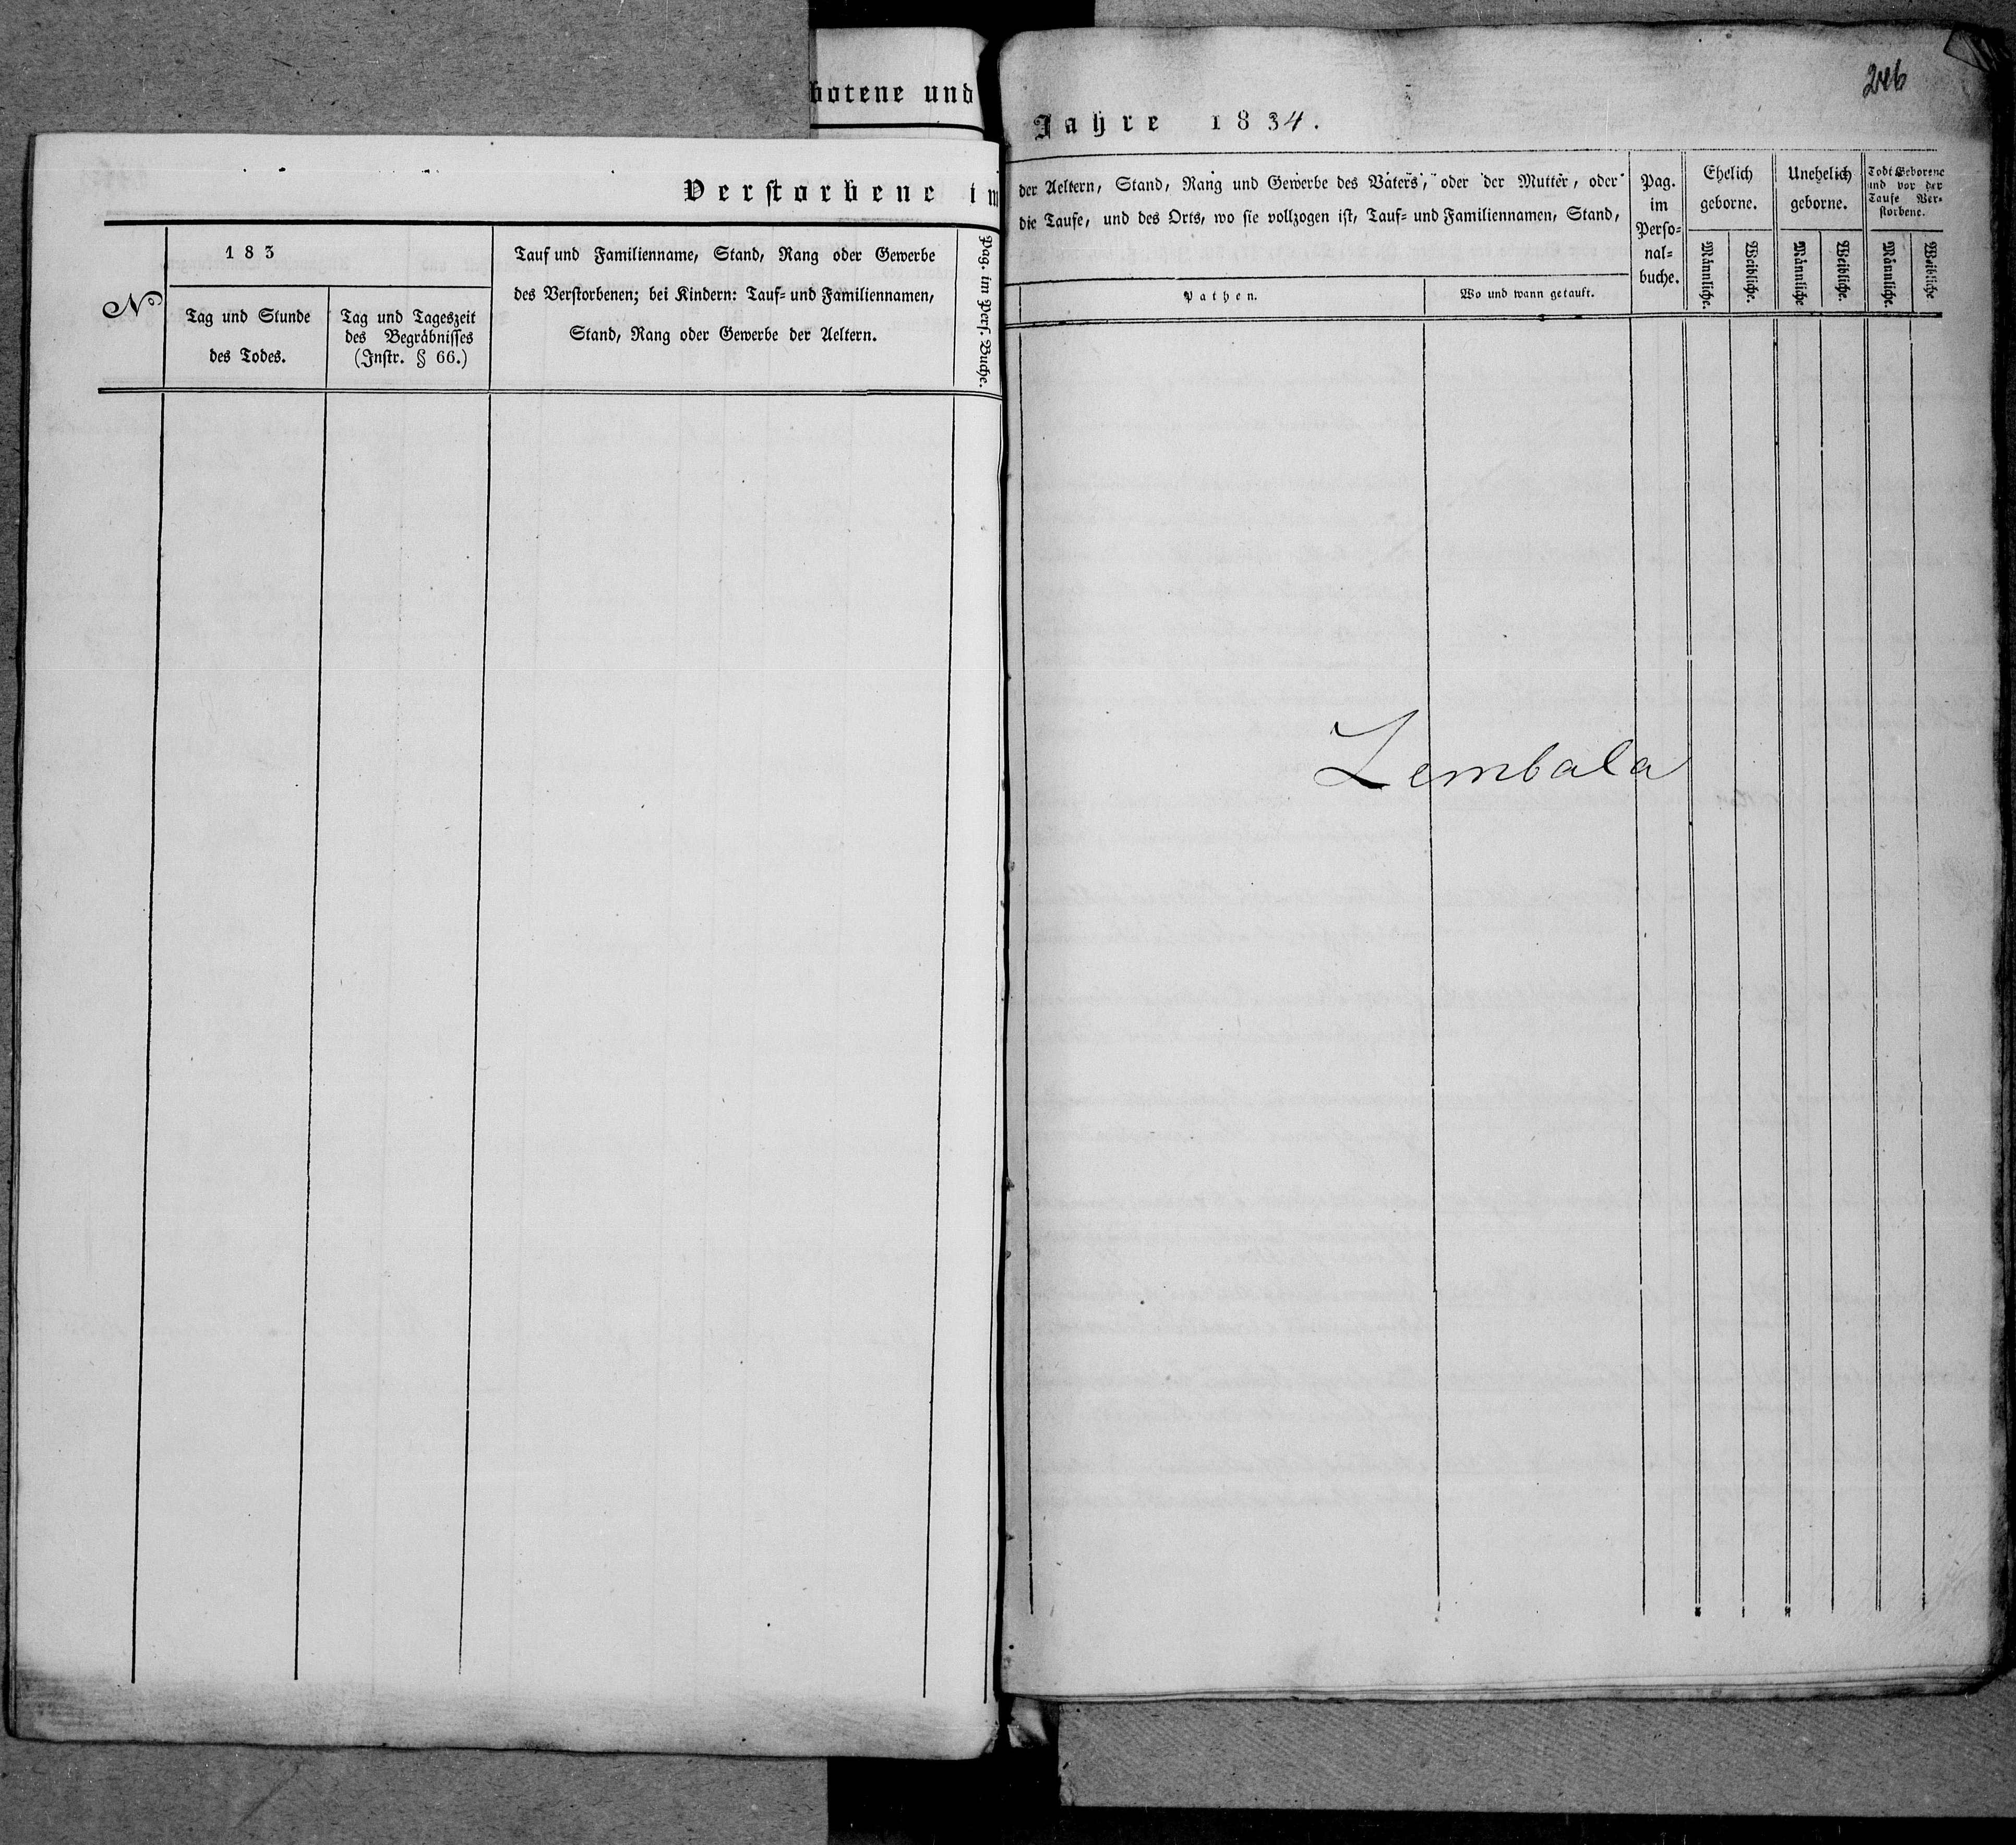 botene und
Verstorbene im
183
Tauf und Familienname, Stand, Rang oder Gewerbe
des Verstorbenen; bei Kindern: Tauf- und Familiennamen,
Stand, Rang oder Gewerbe der Aeltern.
Pag. im Pers. Buche.
No
Tag und Stunde
des Todes.
Tag und Tageszeit
des Begräbnisses
(Instr. § 66.)
246
Jahre 1834.
der Aeltern, Stand, Rang und Gewerbe des Vaters, oder der Mutter, oder
die Taufe, und des Orts, wo sie vollzogen ist, Tauf- und Familiennamen, Stand,
Pathen.
Wo und wann getauft.
Pag.
im
Perso-
nal-
buche.
Ehelich
geborne.
Männliche.
Weibliche.
Unehelich
geborne.
Männliche
Weibliche.
Todt Geborene
und vor der
Taufe Ver-
storbene.
Männliche.
Weibliche
Lembala